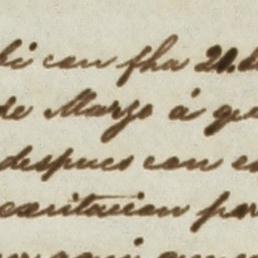 bi con fha 20. d
de Marzo á ge
despues con e
exitacion por